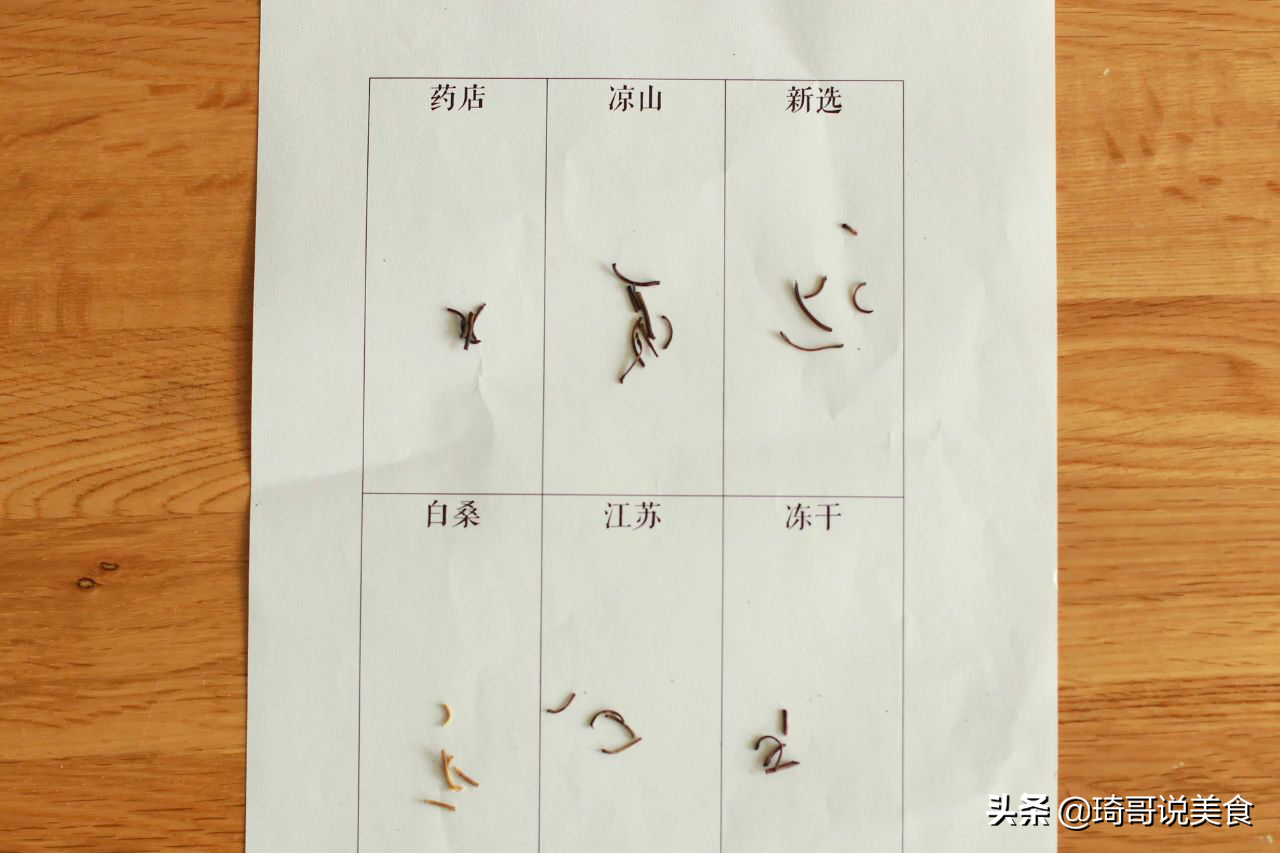 药店 凉山 新选
白桑 江苏 冻干
头条 @琦哥说美食